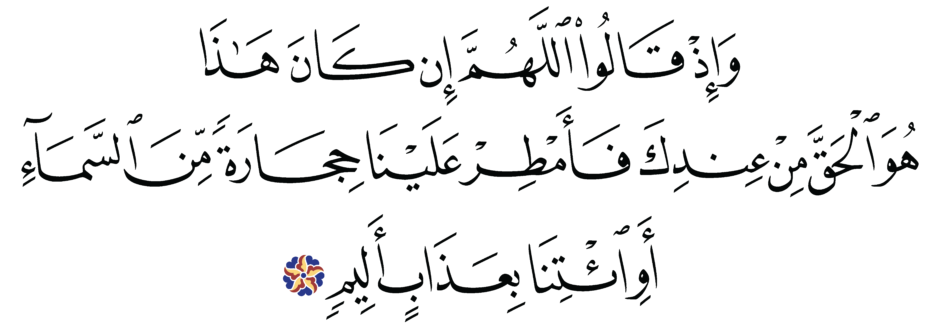 وَإِذْ قَالُوا۟ ٱللَّهُمَّ إِن كَانَ هَـٰذَا
هُوَ ٱلْحَقَّ مِنْ عِندِكَ فَأَمْطِرْ عَلَيْنَا حِجَارَةً مِّنَ ٱلسَّمَآءِ
أَوِ ٱئْتِنَا بِعَذَابٍ أَلِيمٍ